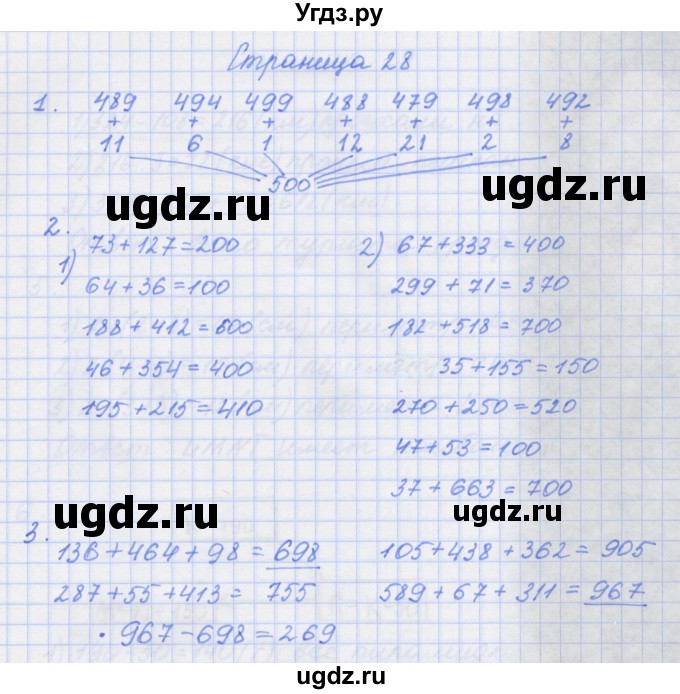 Угдз.ру
Страница 28
1. 489 494 499 488 479 498 492
+ + + + + + +
11 6 1 12 21 2 8
500
ugdz.ru ugdz.ru
2.
1) 73+127=200
64+36=100
188+412=600
46+354=400
195+215=410
2) 67+333=400
299+71=370
182+518=700
35+155=150
270+250=520
47+53=100
37+663=700
ugdz.ru ugdz.ru
ugdz.ru ugdz.ru
3.
136+464+98=698
287+55+413= 755
105+438+362=905
589+67+311=967
· 967-698=269
ugdz.ru